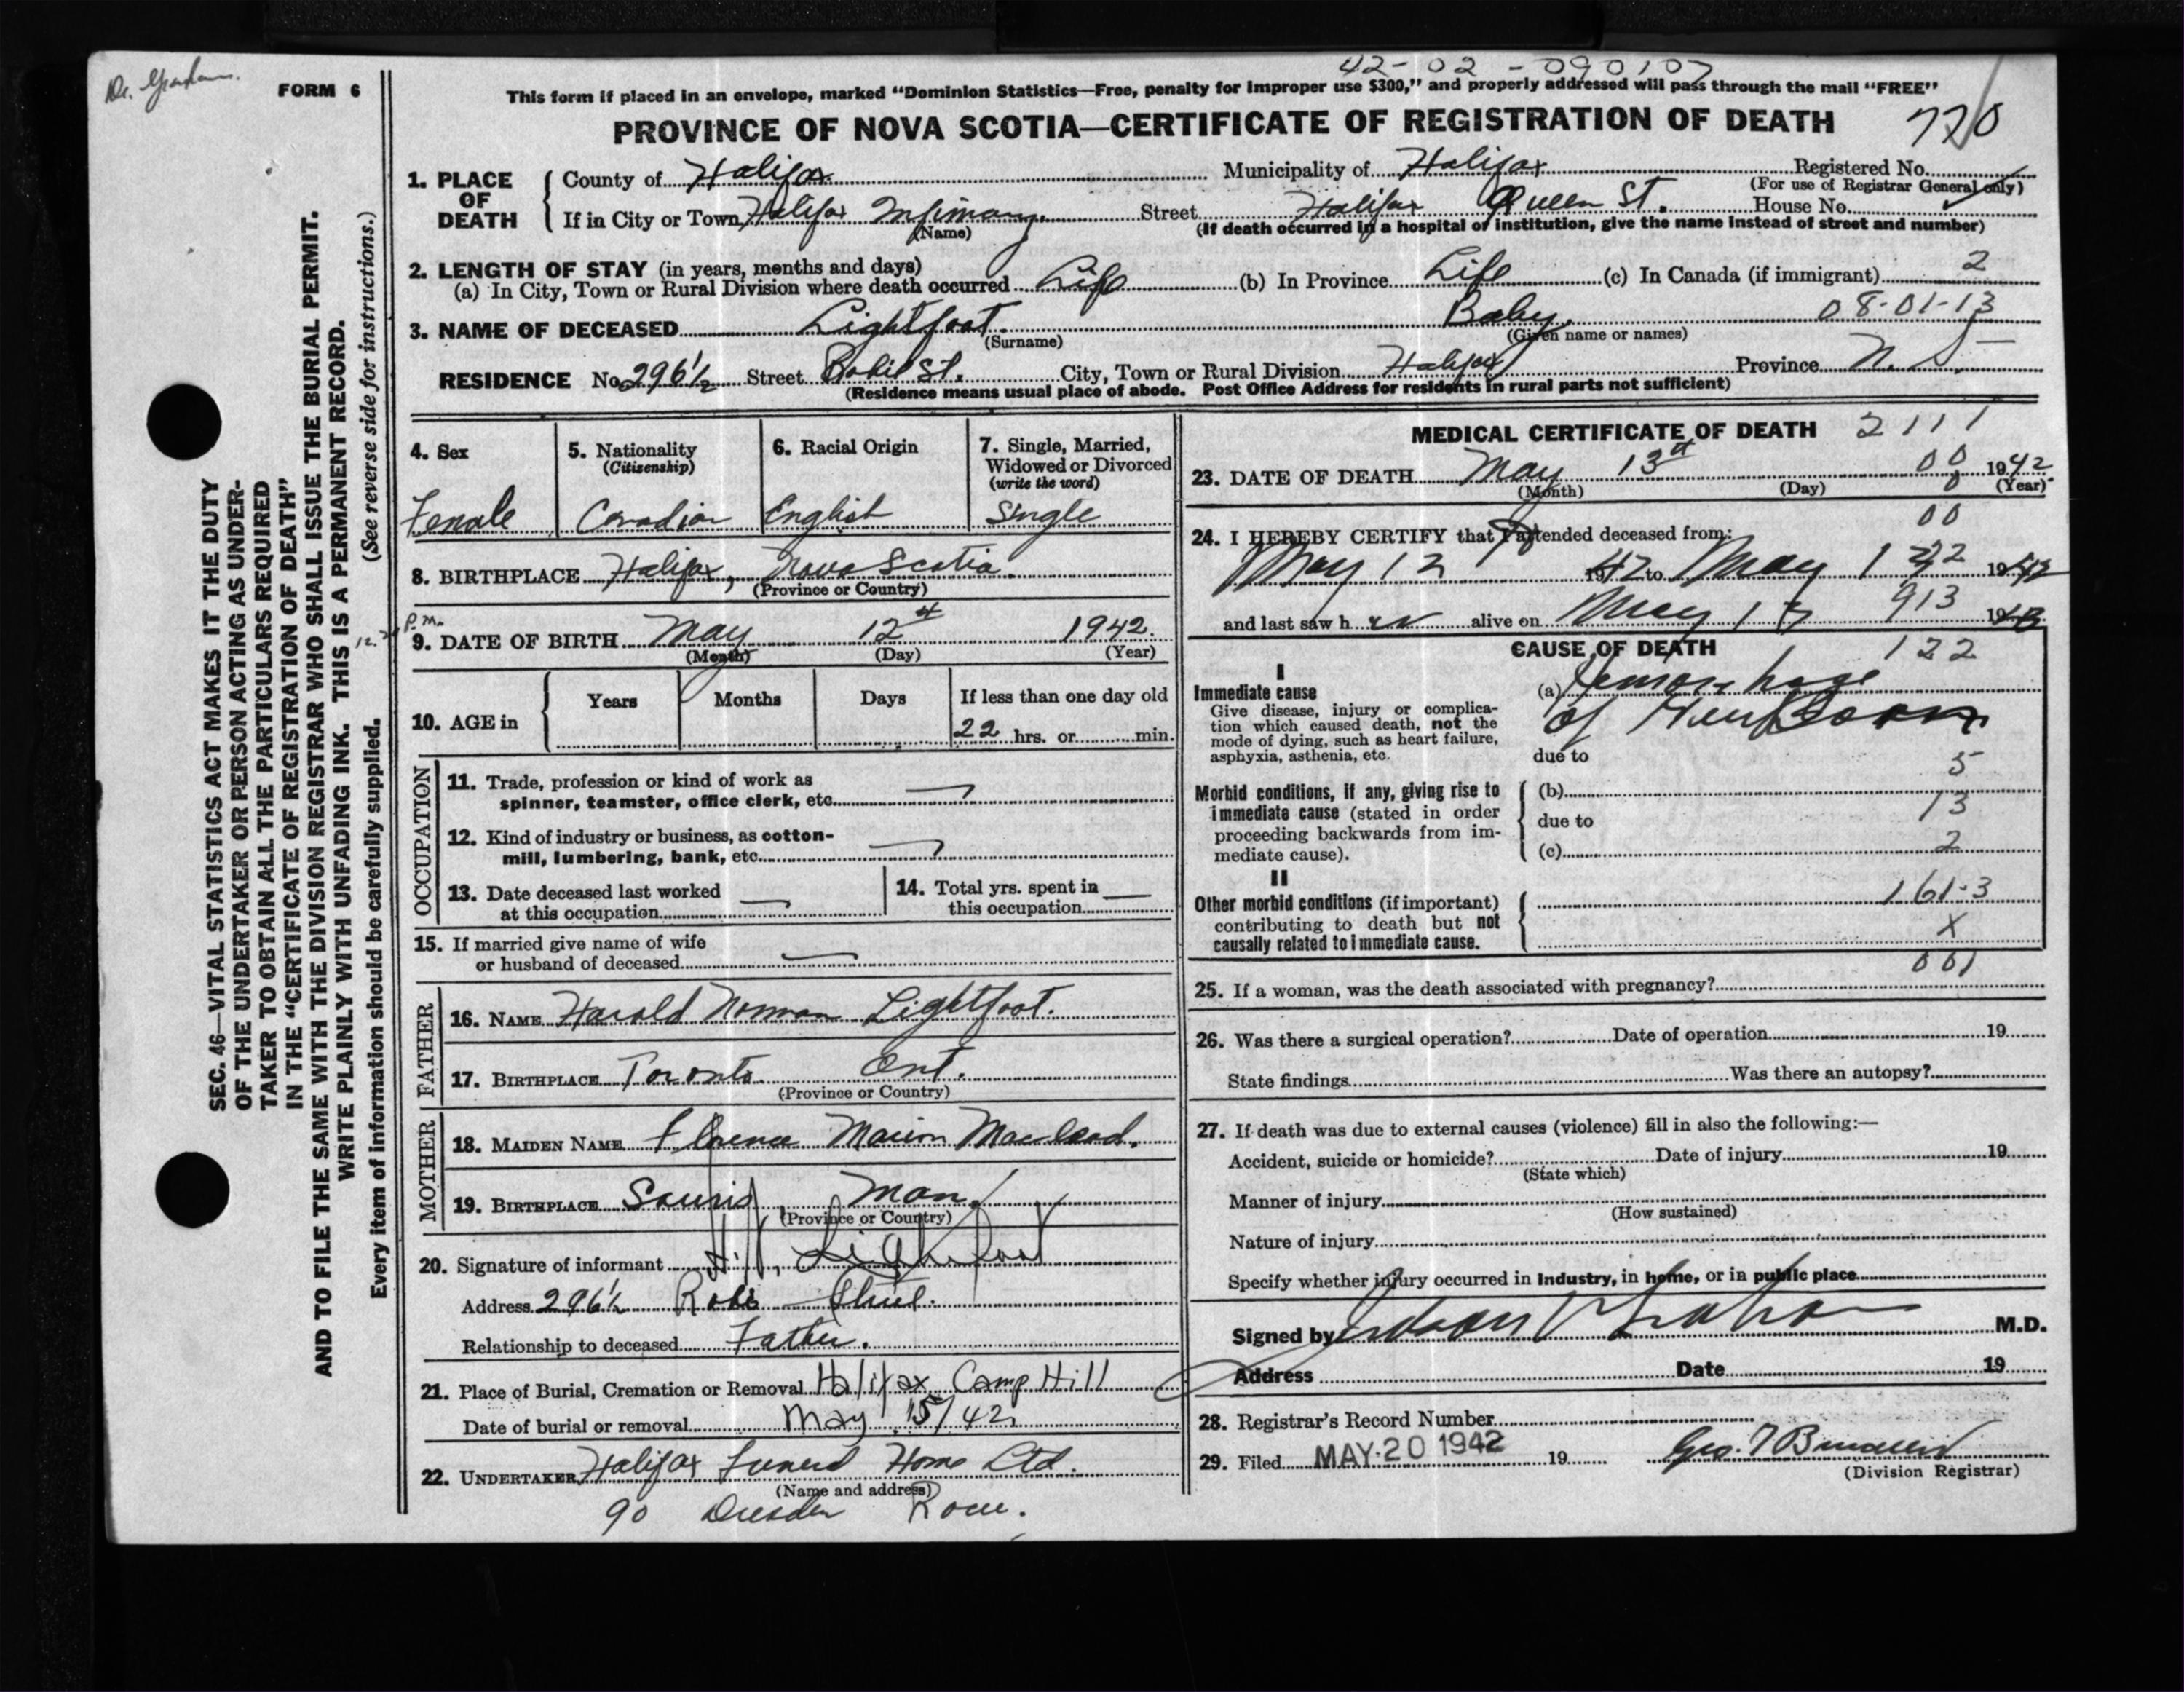 Dr. Graham.
FORM 6
42-02-090107
This form if placed in an envelope, marked "Dominion Statistics—Free, penalty for improper use $300," and properly addressed will pass through the mail "FREE"
PROVINCE OF NOVA SCOTIA—CERTIFICATE OF REGISTRATION OF DEATH
720
1. PLACE OF DEATH
County of Halifax Municipality of Halifax Registered No.
(For use of Registrar General only)
If in City or Town Halifax Infirmary. Street Halifax Queen St. House No.
(Name) (If death occurred in a hospital or institution, give the name instead of street and number)
2. LENGTH OF STAY (in years, months and days)
(a) In City, Town or Rural Division where death occurred Life (b) In Province Life (c) In Canada (if immigrant) 2
3. NAME OF DECEASED Lightfoot. Baby. 08-01-13
(Surname) (Given name or names)
RESIDENCE No. 296½ Street Robie St. City, Town or Rural Division Halifax Province N.S.
(Residence means usual place of abode. Post Office Address for residents in rural parts not sufficient)
4. Sex
Female
5. Nationality
(Citizenship)
Canadian
6. Racial Origin
English
7. Single, Married,
Widowed or Divorced
(write the word)
Single
8. BIRTHPLACE Halifax, Nova Scotia.
(Province or Country)
P.M.
9. DATE OF BIRTH May 12th 1942.
(Month) (Day) (Year)
10. AGE in
Years Months Days If less than one day old
22 hrs. or min.
OCCUPATION
11. Trade, profession or kind of work as
spinner, teamster, office clerk, etc. —
12. Kind of industry or business, as cotton-
mill, lumbering, bank, etc. —
13. Date deceased last worked
at this occupation —
14. Total yrs. spent in
this occupation —
15. If married give name of wife
or husband of deceased —
FATHER
16. NAME Harold Norman Lightfoot.
17. BIRTHPLACE Toronto Ont.
(Province or Country)
MOTHER
18. MAIDEN NAME Florence Marion MacLeod.
19. BIRTHPLACE Souris Man.
(Province or Country)
20. Signature of informant H.N. Lightfoot
Address 296½ Robie Street.
Relationship to deceased Father.
21. Place of Burial, Cremation or Removal Halifax Camp Hill
Date of burial or removal May 15/42
22. UNDERTAKER Halifax Funeral Home Ltd.
(Name and address)
90 Dresden Row.
MEDICAL CERTIFICATE OF DEATH 2111
23. DATE OF DEATH May 13th 00 1942
(Month) (Day) (Year)
00
24. I HEREBY CERTIFY that I attended deceased from:
May 12 1942 to May 1 22 1942
and last saw h er alive on May 13 913 19
CAUSE OF DEATH 122
I
Immediate cause
Give disease, injury or complica-
tion which caused death, not the
mode of dying, such as heart failure,
asphyxia, asthenia, etc.
(a) Hemorrhage
of Newborn
due to
5
Morbid conditions, if any, giving rise to
immediate cause (stated in order
proceeding backwards from im-
mediate cause).
(b)
due to 13
(c) 2
II
Other morbid conditions (if important)
contributing to death but not
causally related to immediate cause.
161-3
X
001
25. If a woman, was the death associated with pregnancy?
26. Was there a surgical operation? Date of operation 19
State findings Was there an autopsy?
27. If death was due to external causes (violence) fill in also the following:—
Accident, suicide or homicide? Date of injury 19
(State which)
Manner of injury
(How sustained)
Nature of injury
Specify whether injury occurred in Industry, in home, or in public place
Signed by Graham M.D.
Address Date 19
28. Registrar's Record Number
29. Filed MAY 20 1942 19 Geo.
(Division Registrar)
SEC. 46—VITAL STATISTICS ACT MAKES IT THE DUTY
OF THE UNDERTAKER OR PERSON ACTING AS UNDER-
TAKER TO OBTAIN ALL THE PARTICULARS REQUIRED
IN THE "CERTIFICATE OF REGISTRATION OF DEATH"
AND TO FILE THE SAME WITH THE DIVISION REGISTRAR WHO SHALL ISSUE THE BURIAL PERMIT.
WRITE PLAINLY WITH UNFADING INK. THIS IS A PERMANENT RECORD.
(See reverse side for instructions.)
Every item of information should be carefully supplied.